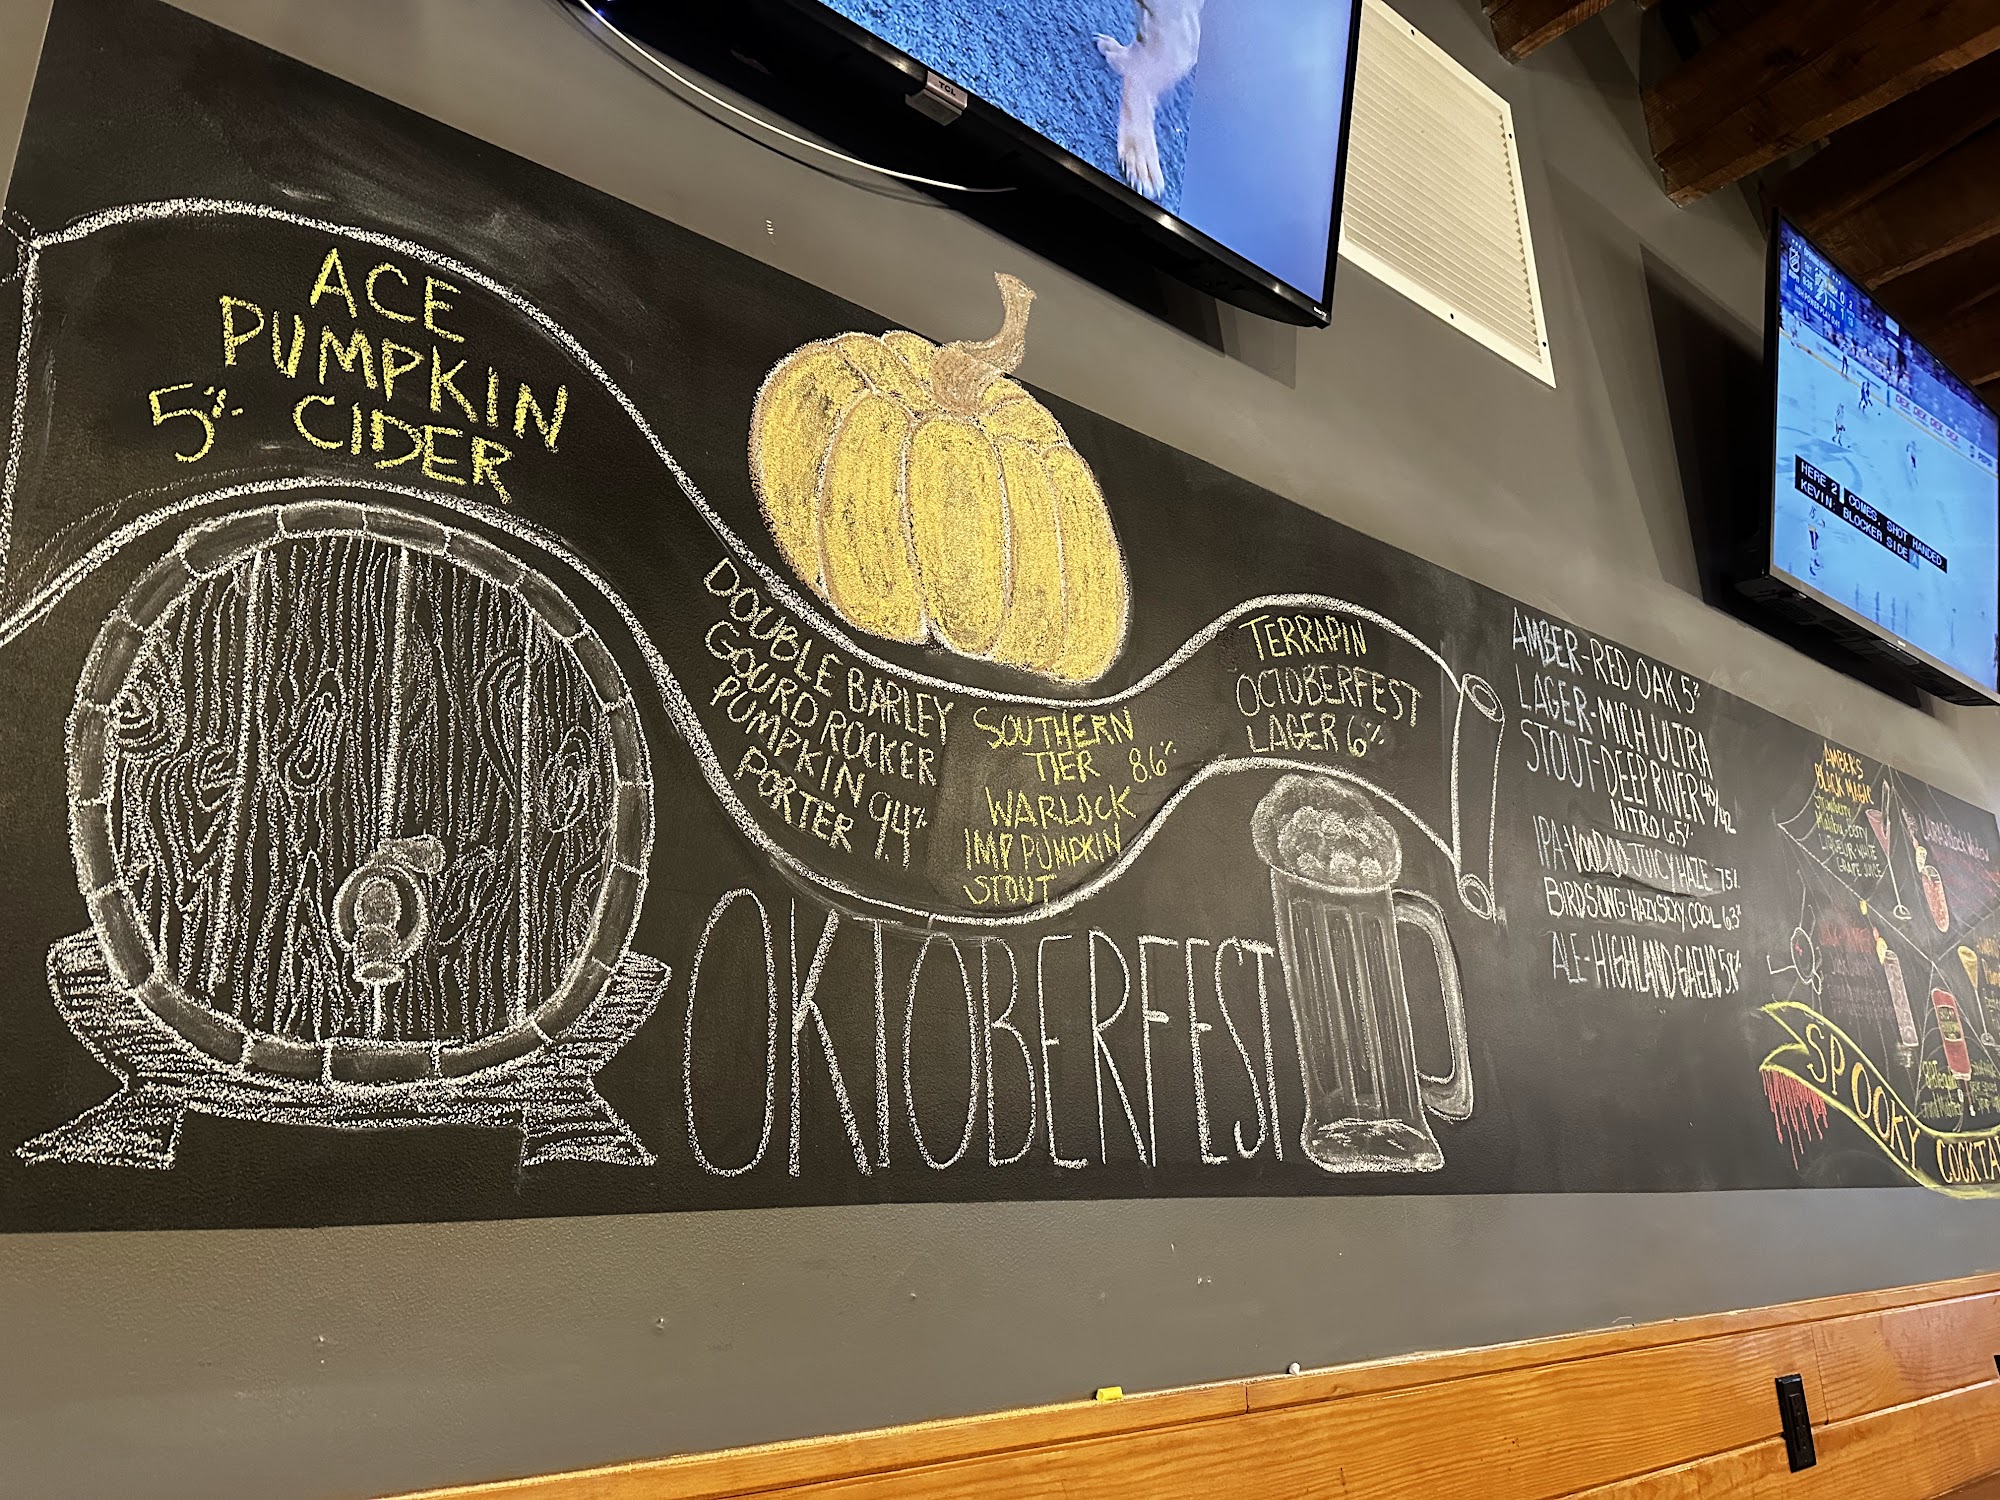 ACE
PUMPKIN
5% CIDER
DOUBLE BARLEY
GOURD ROCKER
PUMPKIN
PORTER 9.4%
SOUTHERN
TIER 8.6%
WARLOCK
IMP PUMPKIN
STOUT
TERRAPIN
OCTOBERFEST
LAGER 6%
OKTOBERFEST
AMBER-RED OAK 5%
LAGER-MICH ULTRA
STOUT-DEEP RIVER 40/42
NITRO 6.5%
IPA-VOODOO-JUICY HAZE 7.5%
BIRDSONG-HAZY SEXY COOL 6.3%
ALE-HIGHLAND GAELIC 5.8%
AMBER'S
BLACK MAGIC
LIQUEUR-WHITE
GRAPE JUICE
SPOOKY
TCL
HERE 2 COMES, SHOT HANDED.
KEVIN. BLOCKER SIDE
DEX DEX DEX DEX